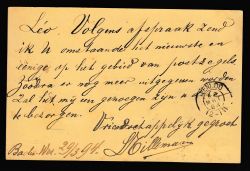 Léo. Volgens afspraak zend
ik U omstaande het nieuwste en
eenige op het gebied van postzegels
Zoodra er nog meer uitgegeven worden
zal het mij een genoegen zijn U
te bezorgen.
Vriendschappelijk gegroet
Hillmann
29/3 94.